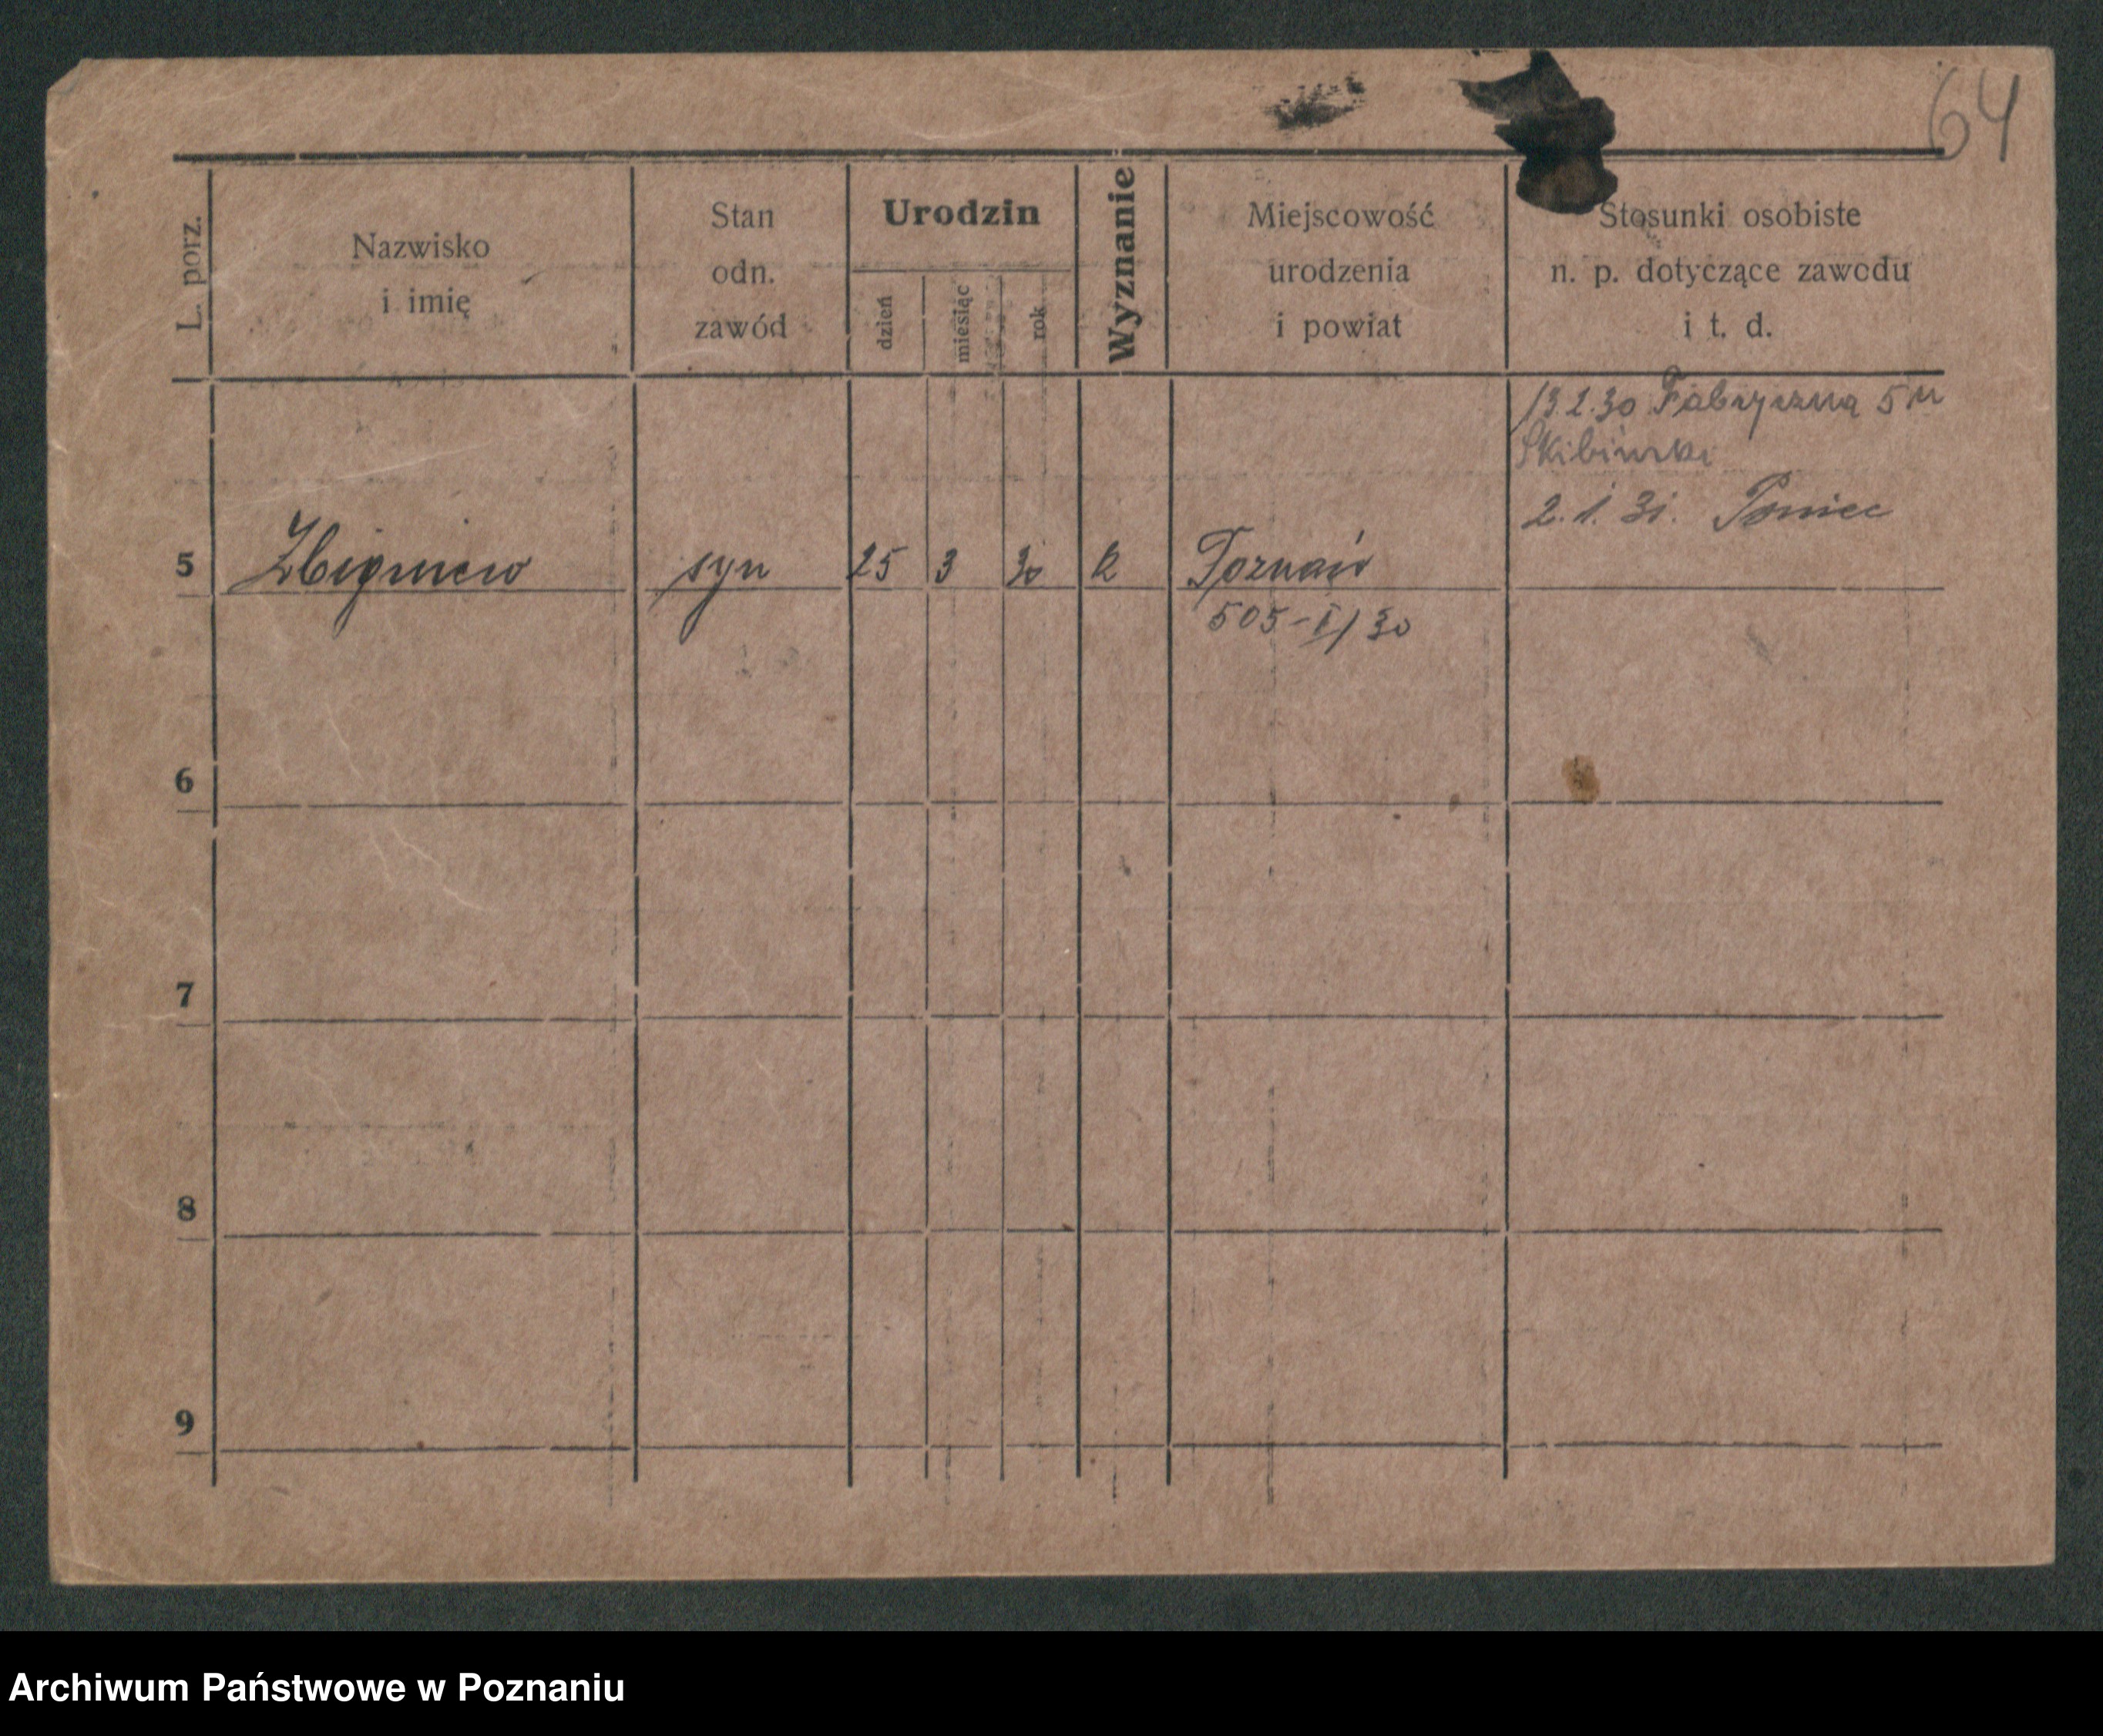 64
L. porz.
Nazwisko
i imię
Stan
odn.
zawód
Urodzin
dzień
miesiąc
rok
Wyznanie
Miejscowość
urodzenia
i powiat
Stosunki osobiste
n. p. dotyczące zawodu
i t. d.
13.2.30 Fabryczna 5
Skibiński
2.1.31. Poniec
5 Zbigniew syn 25 3 30 k Poznań
505-I/30
6
7
8
9
Archiwum Państwowe w Poznaniu